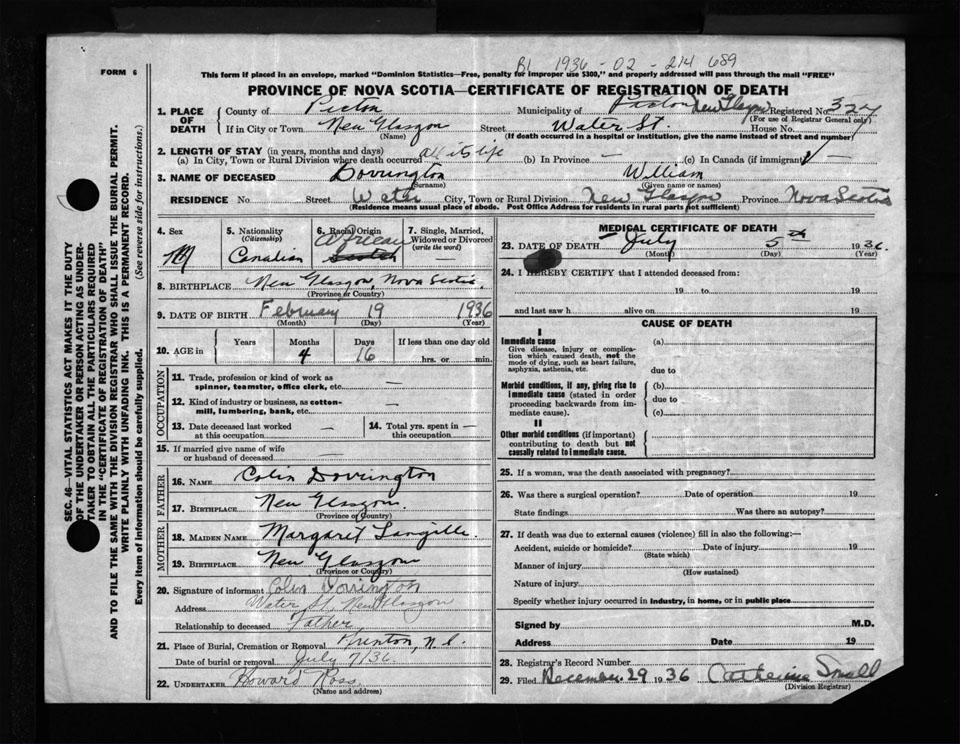 B1 1936 - 02 - 214 689
FORM 6
This form if placed in an envelope, marked "Dominion Statistics—Free, penalty for improper use $300," and properly addressed will pass through the mail "FREE"
PROVINCE OF NOVA SCOTIA—CERTIFICATE OF REGISTRATION OF DEATH
1. PLACE OF DEATH County of Pictou Municipality of Pictou New Glasgow Registered No. 327
(For use of Registrar General only)
If in City or Town New Glasgow Street Water St. House No.
(Name) (If death occurred in a hospital or institution, give the name instead of street and number)
2. LENGTH OF STAY (in years, months and days)
(a) In City, Town or Rural Division where death occurred all its life (b) In Province — (c) In Canada (if immigrant) —
3. NAME OF DECEASED Dorrington William
(Surname) (Given name or names)
RESIDENCE No. Street Water City, Town or Rural Division New Glasgow Province Nova Scotia
(Residence means usual place of abode. Post Office Address for residents in rural parts not sufficient)
4. Sex 5. Nationality (Citizenship) 6. Racial Origin 7. Single, Married, Widowed or Divorced (write the word)
M Canadian African Scotch —
8. BIRTHPLACE New Glasgow, Nova Scotia.
(Province or Country)
9. DATE OF BIRTH February 19 1936
(Month) (Day) (Year)
10. AGE in Years Months Days If less than one day old
4 16 hrs. or min.
OCCUPATION
11. Trade, profession or kind of work as spinner, teamster, office clerk, etc. —
12. Kind of industry or business, as cotton-mill, lumbering, bank, etc. —
13. Date deceased last worked at this occupation — 14. Total yrs. spent in this occupation —
15. If married give name of wife or husband of deceased —
FATHER
16. NAME Colin Dorrington
17. BIRTHPLACE New Glasgow
(Province or Country)
MOTHER
18. MAIDEN NAME Margaret Langille.
19. BIRTHPLACE New Glasgow
(Province or Country)
20. Signature of informant Colin Dorrington
Address Water St, New Glasgow
Relationship to deceased Father
21. Place of Burial, Cremation or Removal Trenton, N.S.
Date of burial or removal July 7/36.
22. UNDERTAKER Howard Ross
(Name and address)
MEDICAL CERTIFICATE OF DEATH
23. DATE OF DEATH July 5th 1936.
(Month) (Day) (Year)
24. I HEREBY CERTIFY that I attended deceased from:
19 to 19
and last saw h alive on 19
CAUSE OF DEATH
I
Immediate cause (a)
Give disease, injury or complication which caused death, not the mode of dying, such as heart failure, asphyxia, asthenia, etc.
due to
Morbid conditions, if any, giving rise to immediate cause (stated in order proceeding backwards from immediate cause).
(b)
due to
(c)
II
Other morbid conditions (if important) contributing to death but not causally related to immediate cause.
25. If a woman, was the death associated with pregnancy?
26. Was there a surgical operation? Date of operation 19
State findings Was there an autopsy?
27. If death was due to external causes (violence) fill in also the following:—
Accident, suicide or homicide? Date of injury 19
(State which)
Manner of injury
(How sustained)
Nature of injury
Specify whether injury occurred in industry, in home, or in public place
Signed by M.D.
Address Date 19
28. Registrar's Record Number
29. Filed December 29 1936 Catherine Small
(Division Registrar)
SEC. 46—VITAL STATISTICS ACT MAKES IT THE DUTY
OF THE UNDERTAKER OR PERSON ACTING AS UNDER-
TAKER TO OBTAIN ALL THE PARTICULARS REQUIRED
IN THE "CERTIFICATE OF REGISTRATION OF DEATH"
AND TO FILE THE SAME WITH THE DIVISION REGISTRAR WHO SHALL ISSUE THE BURIAL PERMIT.
WRITE PLAINLY WITH UNFADING INK. THIS IS A PERMANENT RECORD.
Every item of information should be carefully supplied. (See reverse side for instructions.)